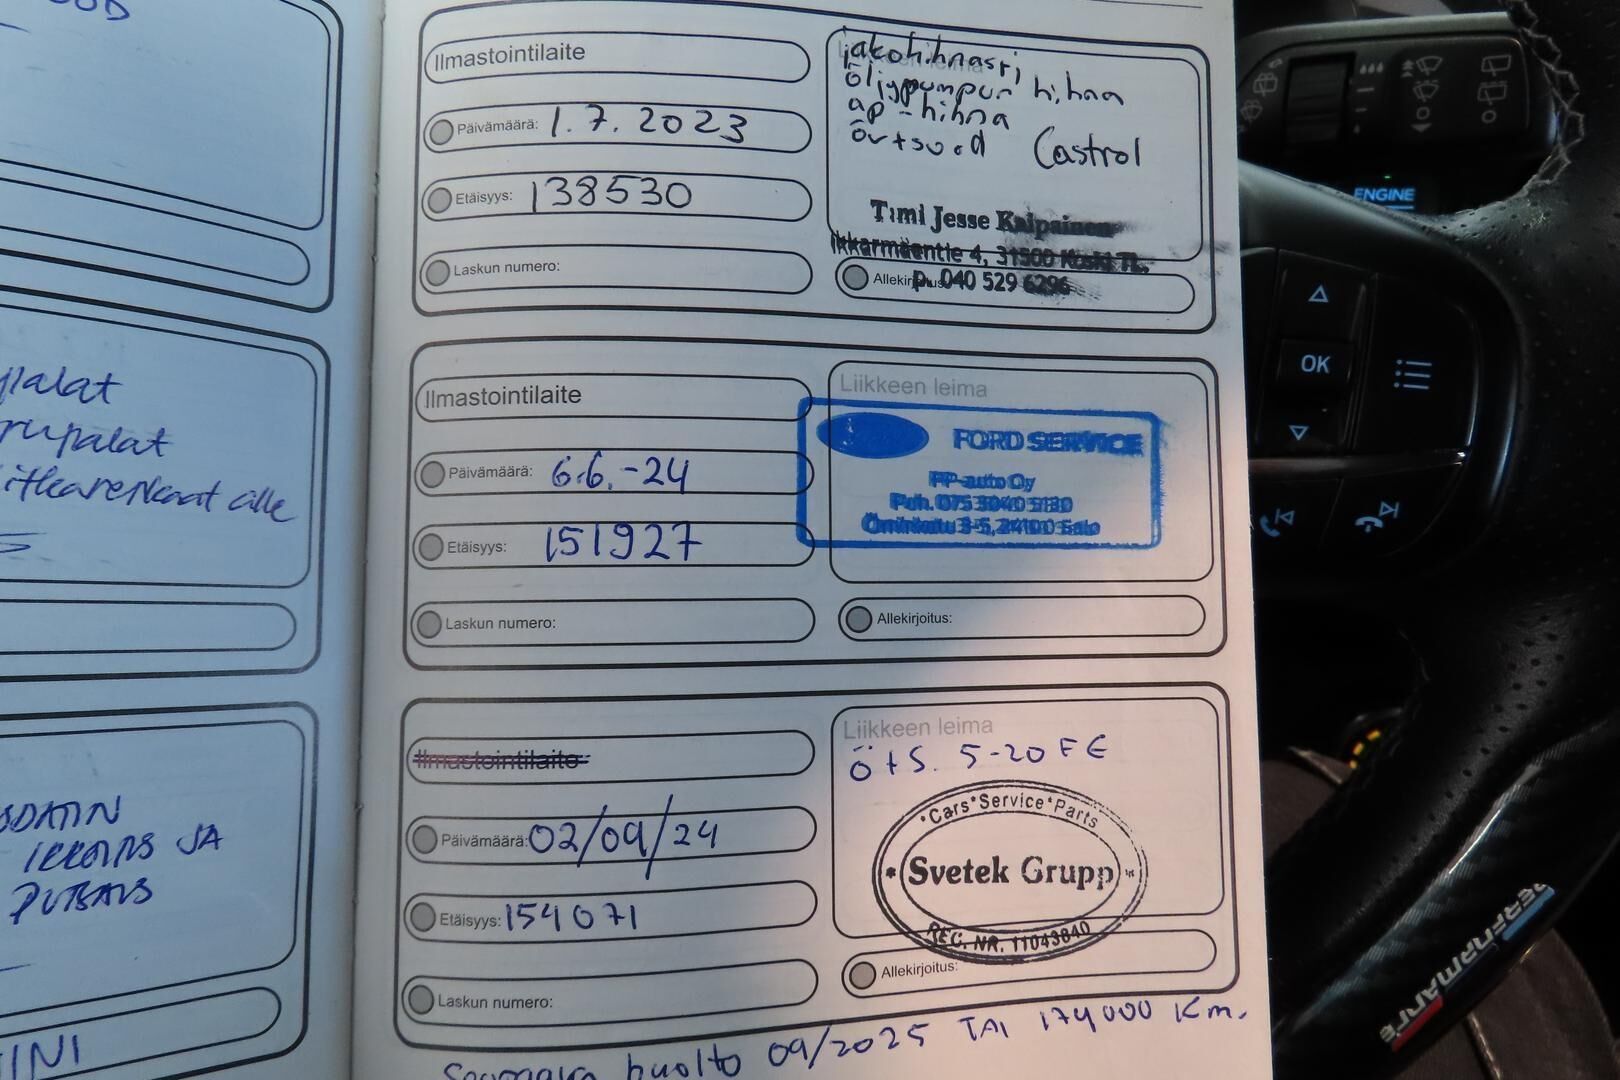 palat
rupalat
alle
JA
Ilmastointilaite
Päivämäärä: 1.7.2023
Etäisyys: 138530
Laskun numero:
öljypumpun hihna
ap-hihna
Castrol
Timi Jesse Kaipainen
4, 31500 Koski TL.
p. 040 529 6296
Ilmastointilaite
Päivämäärä: 6.6.-24
Etäisyys: 151927
Laskun numero:
Liikkeen leima
FORD SERVICE
PP-auto Oy
Puh. 075 3040 5130
3-5, 24100 Salo
Allekirjoitus:
Ilmastointilaite
Päivämäärä: 02/09/24
Etäisyys: 154071
Laskun numero:
Liikkeen leima
ö+s. 5-20 FE
*Cars*Service*Parts
* Svetek Grupp *
REG. NR. 11043840
Allekirjoitus:
huolto 09/2025 TAI 174000 Km.
ENGINE
OK
PERFORMANCE